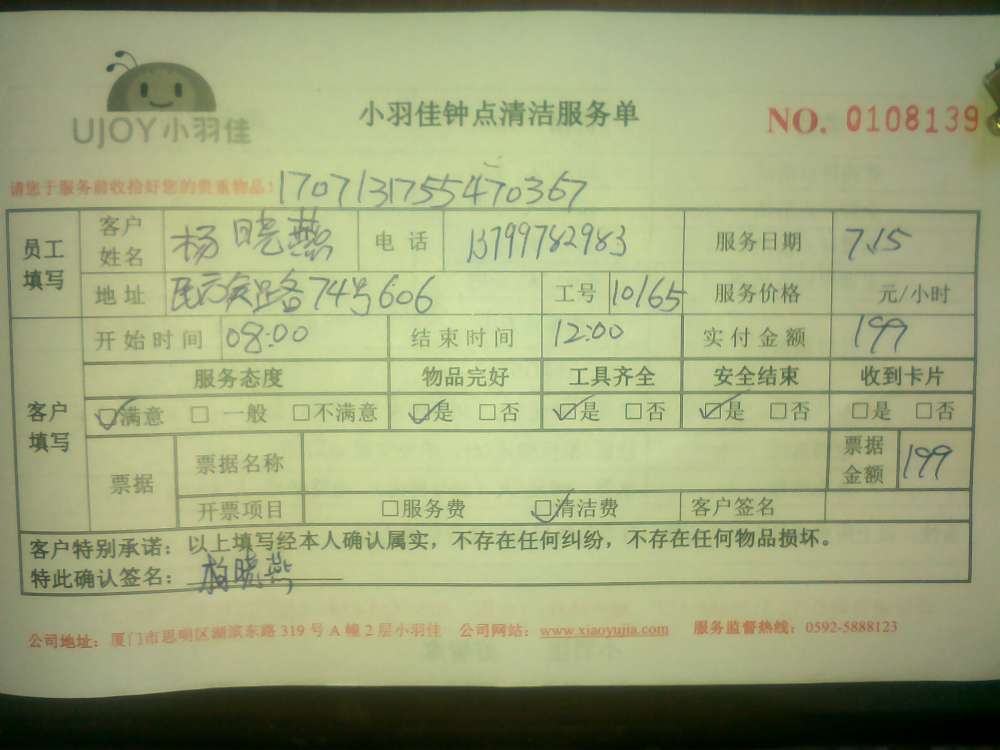 UJOY小羽佳
小羽佳钟点清洁服务单
NO. 0108139
请您于服务前收拾好您的贵重物品！ 1707131755470367
员工填写 客户姓名 杨晓燕 电话 13799782983 服务日期 7.15
地址 路74号606 工号 10165 服务价格 元/小时
客户填写 开始时间 08:00 结束时间 12:00 实付金额 199
服务态度 物品完好 工具齐全 安全结束 收到卡片
☑满意 □一般 □不满意 ☑是 □否 ☑是 □否 ☑是 □否 □是 □否
票据 票据名称 票据金额 199
开票项目 □服务费 ☑清洁费 客户签名
客户特别承诺：以上填写经本人确认属实，不存在任何纠纷，不存在任何物品损坏。
特此确认签名：杨晓燕
公司地址：厦门市思明区湖滨东路319号A幢2层小羽佳 公司网站：www.xiaoyujia.com 服务监督热线：0592-5888123